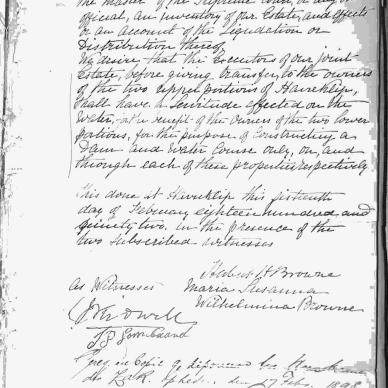 the Master of the Supreme Court, or any
official, an inventory of our Estate, and effects
or an account of the Liquidation or
Distribution thereof
My desire, that the Executors of our joint
Estate, before giving transfer, to the owners
of the two upper portions of Haveklip,
shall have a Servitude effected on the
Water, benefit of the owners of the two lower
portions, for the purpose of constructing a
Dam and Water Course only, on, and
through each of these properties respectively
This done at Havenklip this fifteenth
day of February eighteen hundred and
ninety two, in the presence of the
two subscribed witnesses
Hebert H Browne
As Witnesses Maria Susanna
Wilhelmina Browne
Feb. 1898